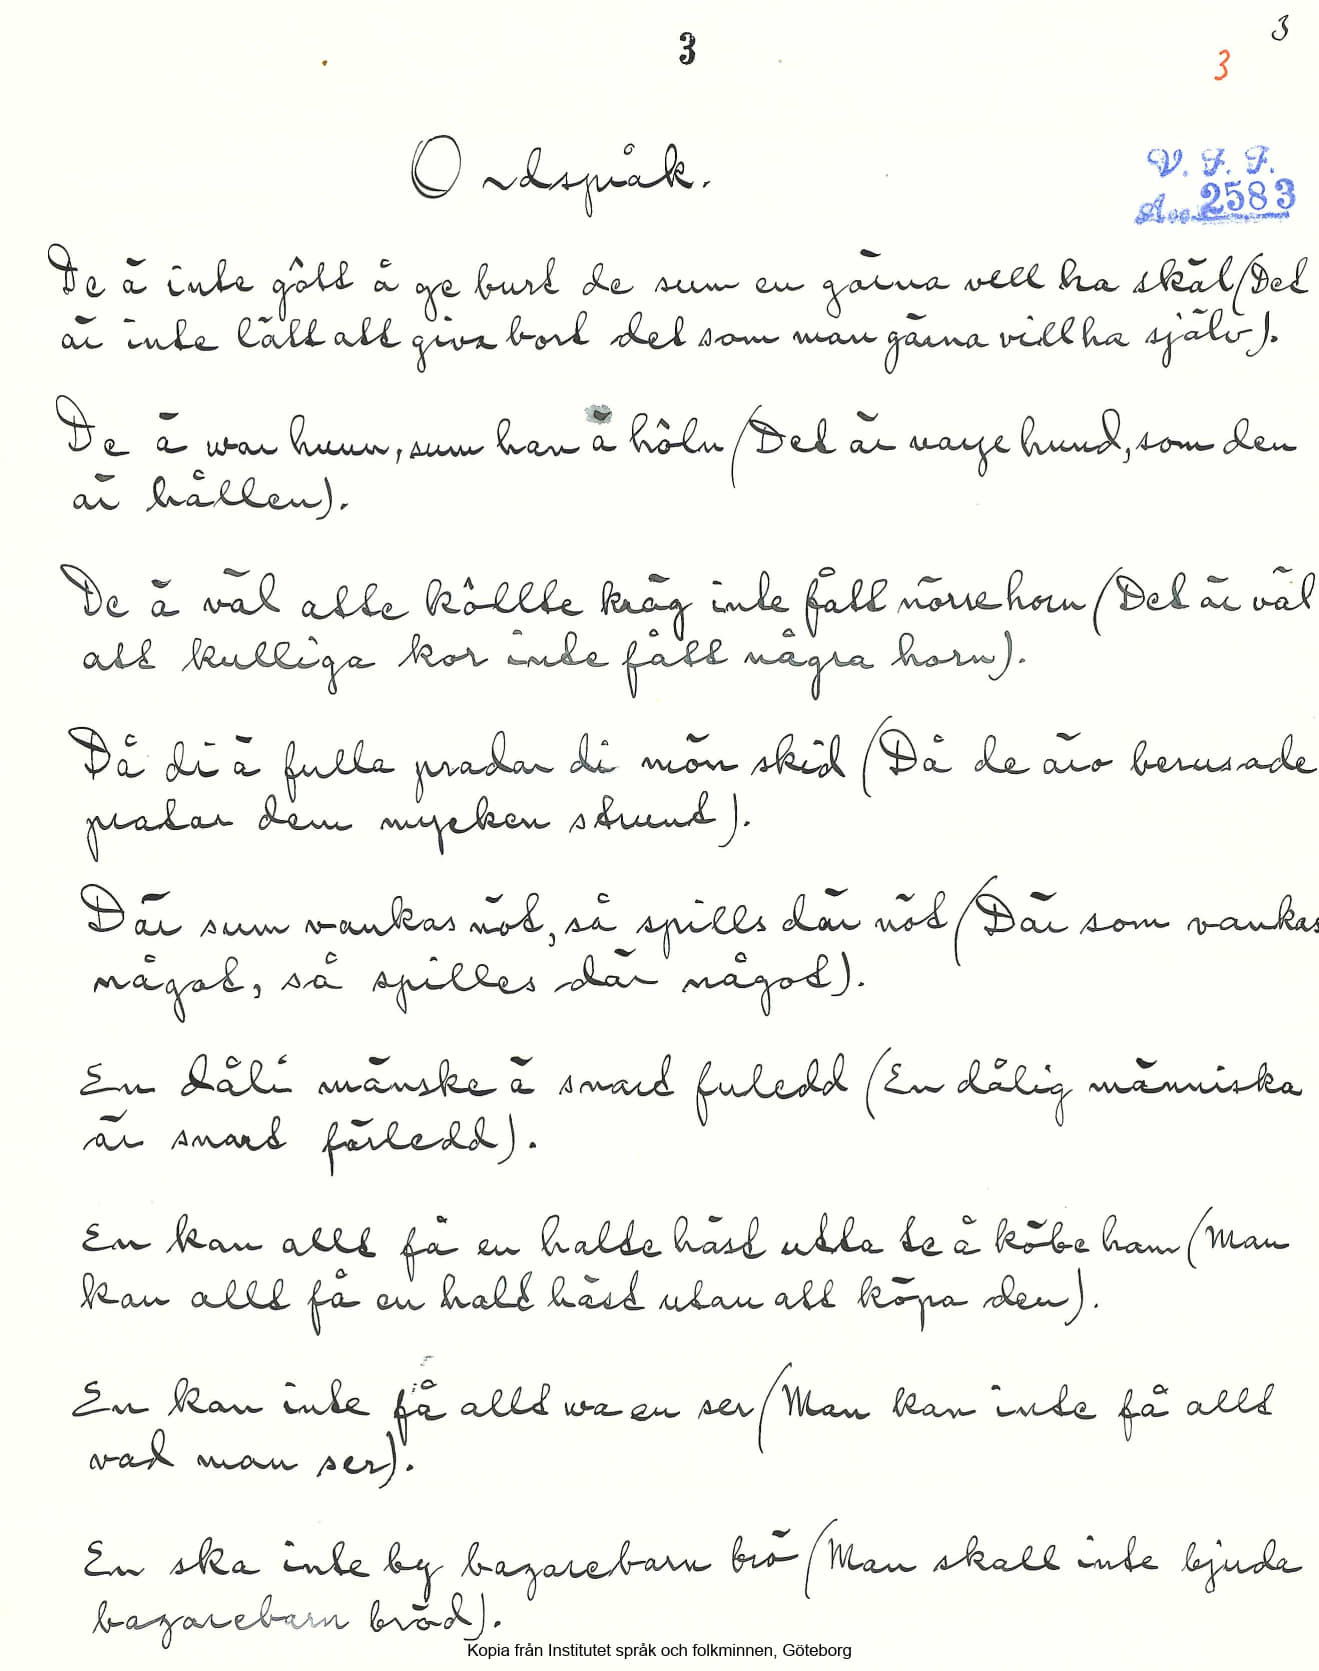 3
3
3
Ordspråk.
V. F. F.
Acc. 2583
De ä inte gôtt å ge burt de sum en gärna vell ha skäl (Det
är inte lätt att giva bort det som man gärna vill ha själv).
De ä war hunn, sum han ä hôln (Det är varje hund, som den
är hållen).
De ä väl atte kôllte kräg inte fått nörre horn (Det är väl
att kulliga kor inte fått några horn).
Då di ä fulla pradar di mön skid (Då de äro berusade
pratar dem mycken strunt).
Där sum vankas nöt, så spills där nöt (Där som vankas
något, så spilles där något).
En dåli mänske ä snard fuledd (En dålig människa
är snart förledd).
En kan allt få en halte häst utta te å köbe ham (Man
kan allt få en halt häst utan att köpa den).
En kan inte få allt wa en ser (Man kan inte få allt
vad man ser).
En ska inte by bagarebarn brö (Man skall inte bjuda
bagarebarn bröd).
Kopia från Institutet språk och folkminnen, Göteborg